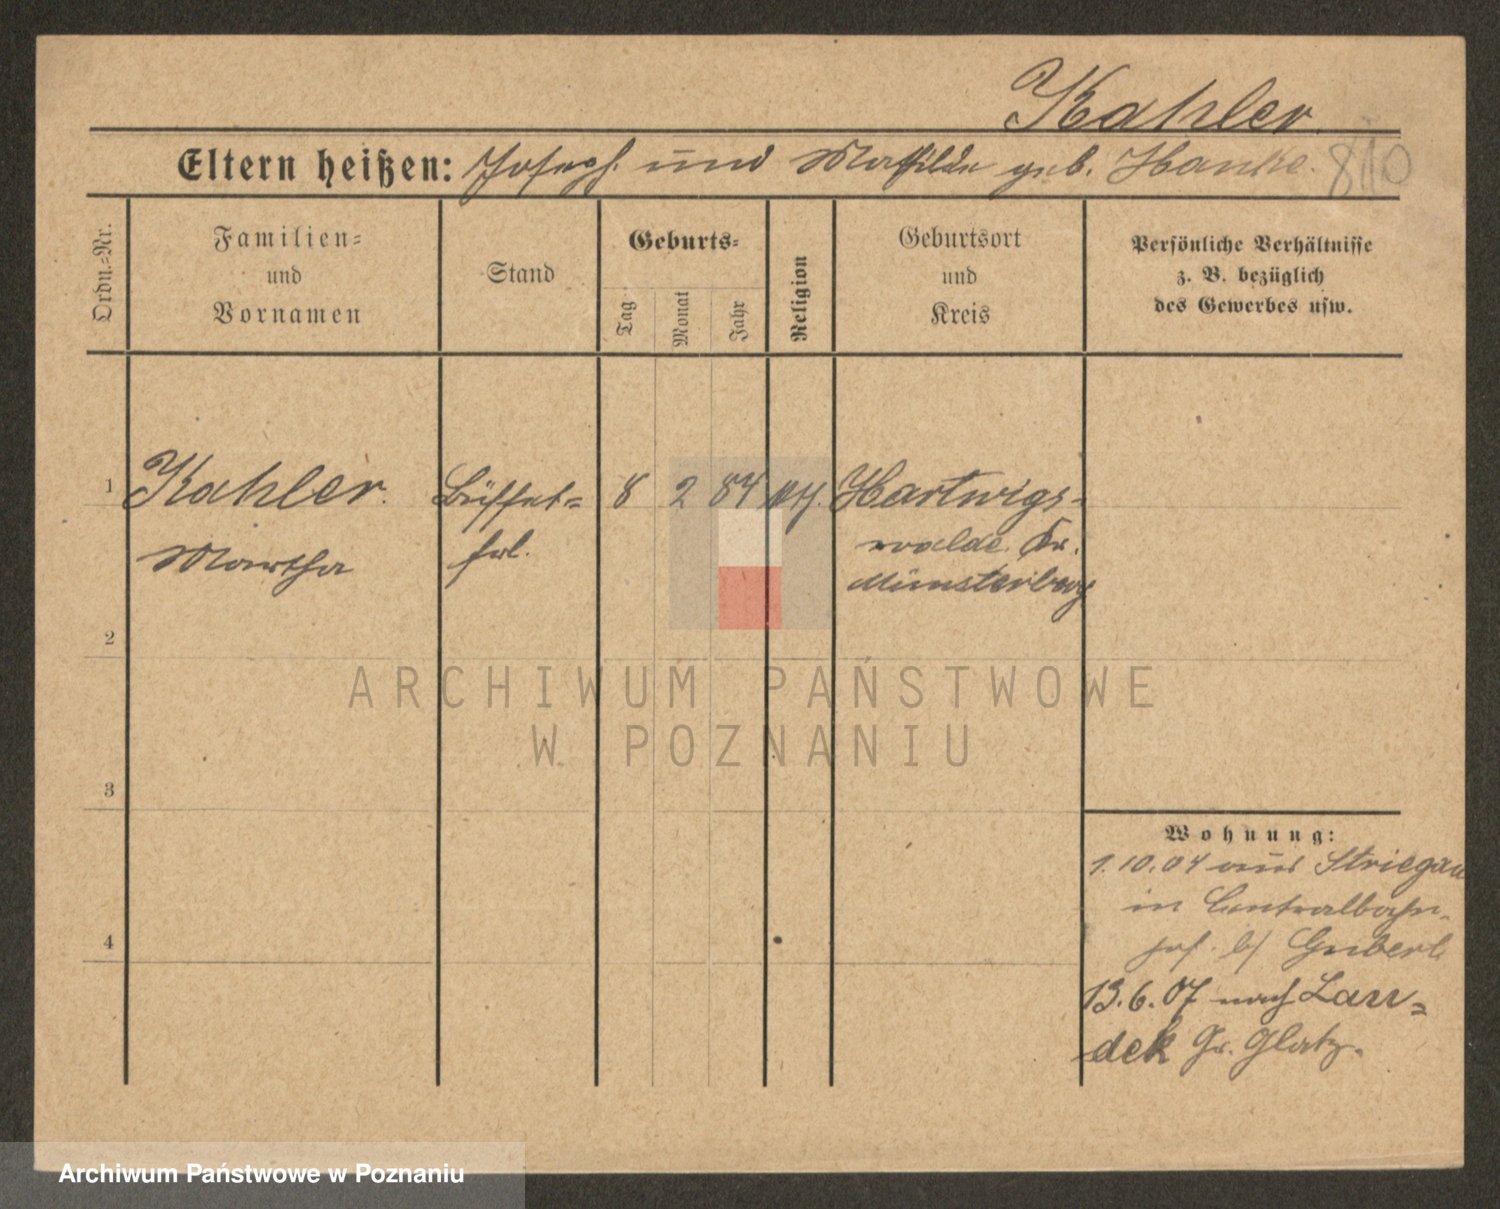 Kahler.
Eltern heißen: Joseph und Mathilde geb. Hanke.
Ordn.-Nr.
Familien-
und
Vornamen
Stand
Geburts-
Tag
Monat
Jahr
Religion
Geburtsort
und
Kreis
Persönliche Verhältnisse
z. B. bezüglich
des Gewerbes usw.
1 Kahler. Büffet- 8 2 84 Hartwigs-
Martha frl. walde. Kr.
Münsterberg
2
ARCHIWUM PAŃSTWOWE
W POZNANIU
3
Wohnung:
1.10.04 aus Striegau
in Centralbahn-
hof b/
4
13.6.07 nach Lan-
dek Gr. Glatz.
Archiwum Państwowe w Poznaniu